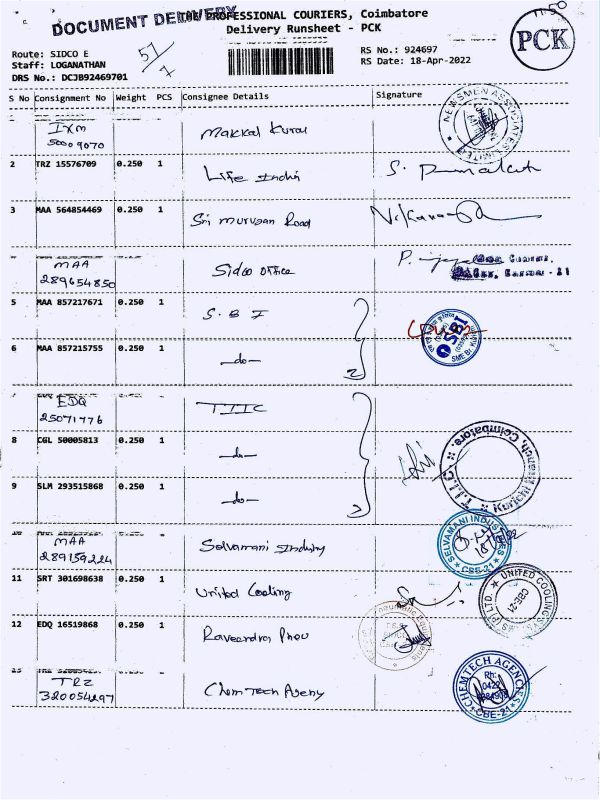 DOCUMENT DELIVERY
THE PROFESSIONAL COURIERS, Coimbatore
Delivery Runsheet - PCK
11.50
PCK
Route: SIDCO E
Staff: LOGANATHAN
DRS No.: DCJB92469701
51/7
RS No.: 924697
RS Date: 18-Apr-2022
S No Consignment No Weight PCS Consignee Details Signature
IXM
50009070
Makkal Kural
NEWSMEN ASSOCIATES
2 TRZ 15576709 0.250 1 Life India
3 MAA 564854469 0.250 1 Sri Murugan Road
MAA
289654850
Sidco office
5 MAA 857217671 0.250 1 S. B I
6 MAA 857215755 0.250 1 -do-
SBI
SME Br.
EDQ
25071776
TIIC
8 CGL 50005813 0.250 1 -do-
9 SLM 293515868 0.250 1 -do-
T.I.I.C. Kurichi Branch, Coimbatore.
10
MAA
289159224
Selvamani Industry
SELVAMANI INDUSTRIES
CBE-21
11 SRT 301698638 0.250 1 United Cooling
UNITED COOLING SYS (P) LTD.
CBE-21
12 EDQ 16519868 0.250 1 Raveendra Pneu
13
TRZ
320054297
Chem Tech Ageny
CHEMTECH AGENCIES
Ph:
0422
CBE-21